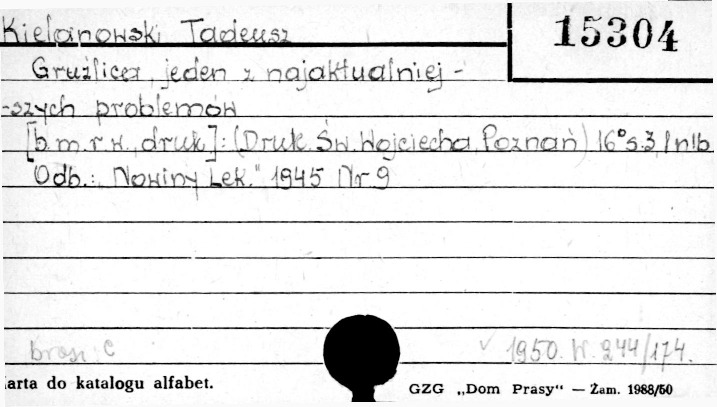 Kielanowski Tadeusz
15304
Gruźlica, jeden z najaktualniej -
-szych problemów
[b.m.r.w., druk]: (Druk. Św. Wojciecha, Poznań) 16° s. 3, 1 nlb
Odb.: „Nowiny Lek." 1945 Nr 9
brosz. c
✓ 1950. W. 244/174.
arta do katalogu alfabet.
GZG „Dom Prasy“ — Zam. 1988/50